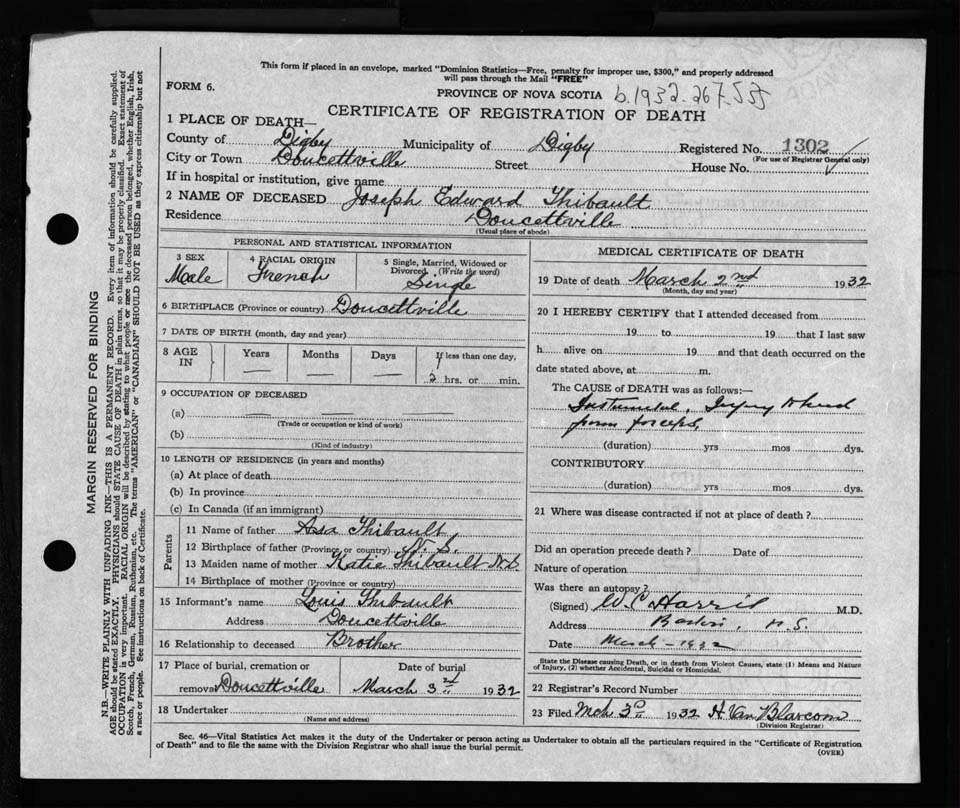 This form if placed in an envelope, marked "Dominion Statistics—Free, penalty for improper use, $300," and properly addressed
will pass through the Mail "FREE"
FORM 6.
PROVINCE OF NOVA SCOTIA b.1932.267.
CERTIFICATE OF REGISTRATION OF DEATH
1 PLACE OF DEATH—
County of Digby Municipality of Digby Registered No. 1302
City or Town Doucettville Street House No. (For use of Registrar General only)
If in hospital or institution, give name
2 NAME OF DECEASED Joseph Edward Thibault
Residence Doucettville
(Usual place of abode)
PERSONAL AND STATISTICAL INFORMATION
3 SEX Male
4 RACIAL ORIGIN French
5 Single, Married, Widowed or Divorced. (Write the word) Single
6 BIRTHPLACE (Province or country) Doucettville
7 DATE OF BIRTH (month, day and year)
8 AGE IN Years — Months — Days — If less than one day, 2 hrs. or min.
9 OCCUPATION OF DECEASED
(a) — —
(Trade or occupation or kind of work)
(b)
(Kind of industry)
10 LENGTH OF RESIDENCE (in years and months)
(a) At place of death
(b) In province
(c) In Canada (if an immigrant)
Parents
11 Name of father Asa Thibault
12 Birthplace of father (Province or country) N. S.
13 Maiden name of mother Katie Thibault
14 Birthplace of mother (Province or country)
15 Informant's name Louis Thibault
Address Doucettville
16 Relationship to deceased Brother
17 Place of burial, cremation or removal Doucettville
Date of burial March 3rd 1932
18 Undertaker
(Name and address)
MEDICAL CERTIFICATE OF DEATH
19 Date of death March 2nd 1932
(Month, day and year)
20 I HEREBY CERTIFY that I attended deceased from
19 to 19 that I last saw
h alive on 19 and that death occurred on the
date stated above, at m.
The CAUSE of DEATH was as follows:—
Instrumental, Injury to head
from forceps,
(duration) yrs mos dys.
CONTRIBUTORY
(duration) yrs mos dys.
21 Where was disease contracted if not at place of death?
Did an operation precede death? Date of
Nature of operation
Was there an autopsy?
(Signed) W C Harris M.D.
Address N. S.
Date March – 1932
State the Disease causing Death, or in death from Violent Causes, state (1) Means and Nature
of Injury, (2) whether Accidental, Suicidal or Homicidal.
22 Registrar's Record Number
23 Filed Mch 3 1932 H Van Blarcom
(Division Registrar)
Sec. 46—Vital Statistics Act makes it the duty of the Undertaker or person acting as Undertaker to obtain all the particulars required in the "Certificate of Registration
of Death" and to file the same with the Division Registrar who shall issue the burial permit.
(OVER)
MARGIN RESERVED FOR BINDING
N.B.—WRITE PLAINLY WITH UNFADING INK—THIS IS A PERMANENT RECORD. Every item of information should be carefully supplied.
AGE should be stated EXACTLY. PHYSICIANS should STATE CAUSE OF DEATH in plain terms, so that it may be properly classified. Exact statement of
OCCUPATION is very important. RACIAL ORIGIN will be described by stating to what people or race the deceased person belonged, whether English, Irish,
Scotch, French, German, Russian, Ruthenian, etc. The terms "AMERICAN" or "CANADIAN" SHOULD NOT BE USED as they express citizenship but not
a race or people. See instructions on back of Certificate.